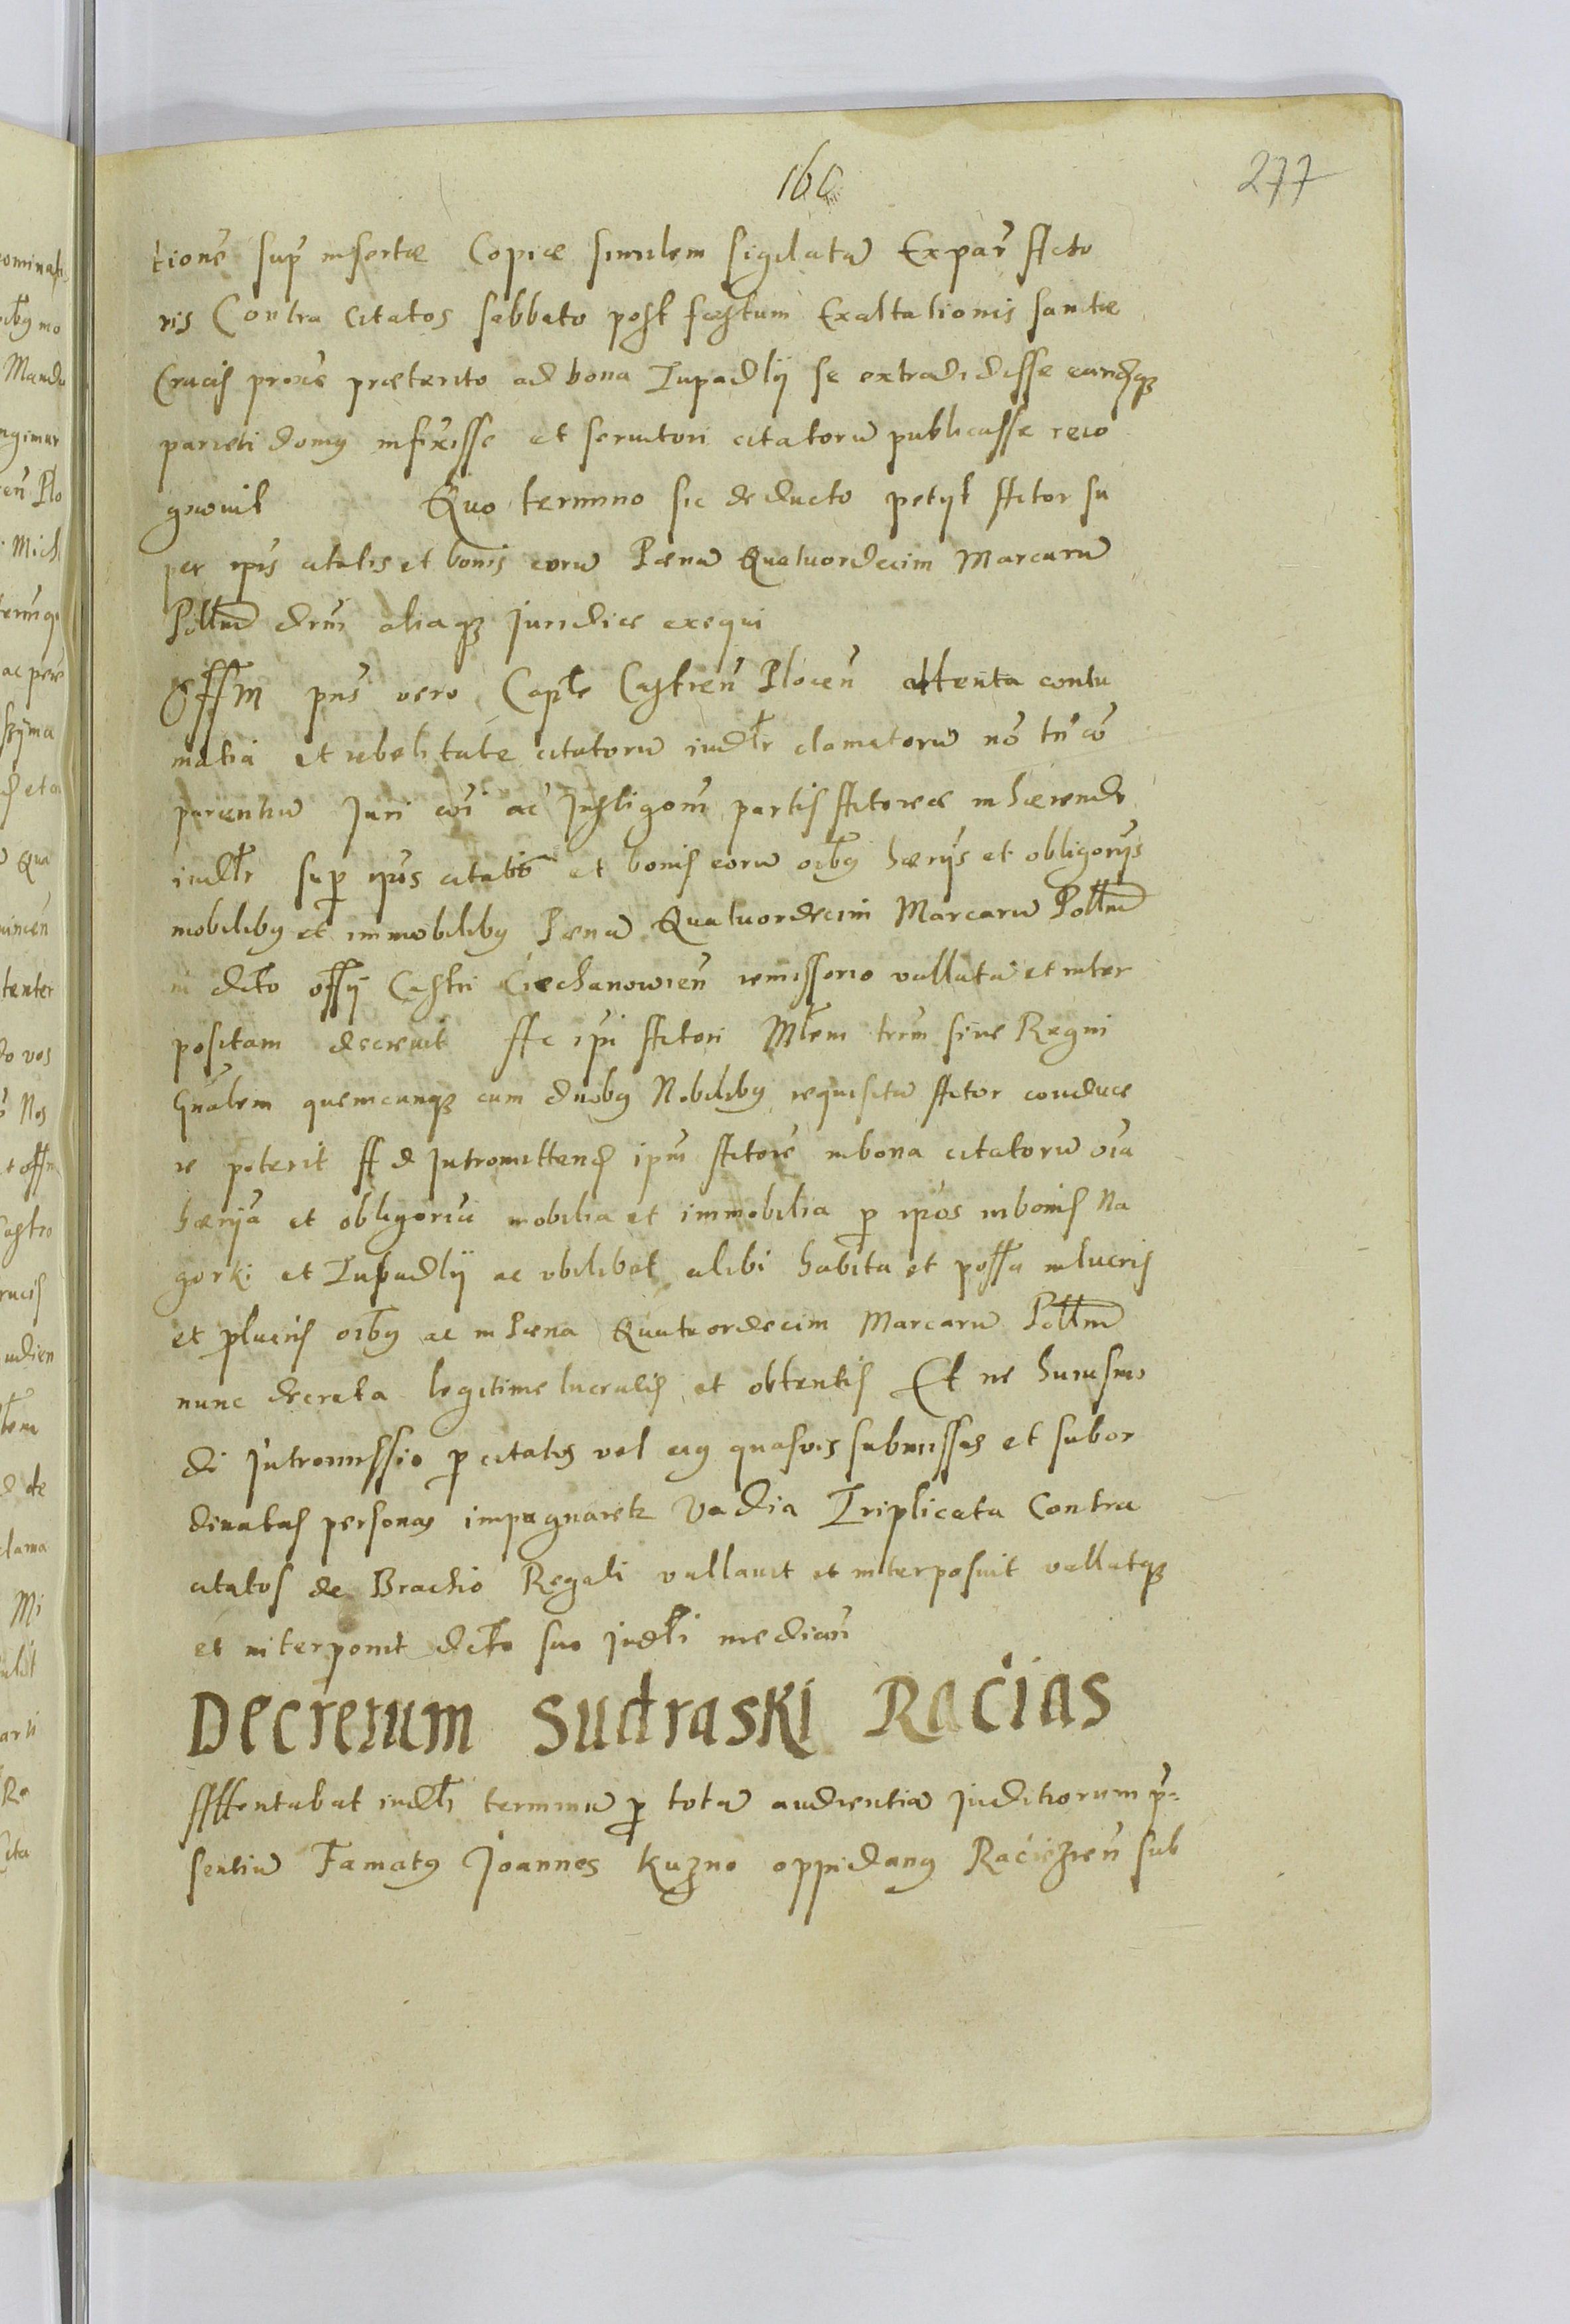 160
277
tione sup insertae Copiae similem sigilatā Ex par Acto
ris Contra Citatos sabbato post festum Exaltationis sanctae
Crucis proxe praeterito ad bona Lupadly se extradidisse eandq
parieti domus infixisse et servitori citatorū publicasse reco
gnovit Quo termino sic deducto petyt Actor su
per ipis citatis et bonis eorū Paenā Quatuordecim Marcarū
Pollm drm aliaq juridice exequi
Offm pns vero Caple Castren Plocen attenta contu
matia et rebelitate citatorū iudlr clamatorū nō tn cō
parentiū Juri coi ac Instigoni partis Actoreae inhaerendo
iudlr sup ipos citatos et bonis eorū oibus haerys et obligorys
mobilibus et immobilibus Paenā Quatuordecim Marcarū Pollm
in dcto offy Castri Ciechanowien remissorio vallatā et inter
positam decrevit Ac ipi Actori Mlem trm sive Regni
Gnalem quemcunq cum duobus Nobilibus requisitū Actor conduce
re poterit Ad Intromittend ipm Actore in bona citatorū oia
haerya et obligoria mobilia et immobilia p ipos in bonis Na
gorki et Lupadly ac ubilibet alibi habita et possa in lucris
et plucris oibus ac in Paena Quatuordecim Marcarū Pollm
nunc decreta legitime lucratis et obtentis Et ne huiusmo
di Intromissio p citatos vel eius quasvis submissas et subor
dinatas personas impugnaretr Vadia Triplicata Contra
citatos de Brachio Regali vallavit et interposuit vallatq
et interponit dcto suo judli median
Decretum Sudraski Racias
Attentabat iudli terminū p totā audientiā Juditiorum p=
sentiū Famatus Joannes Kuzno oppidanus Raciezien sub